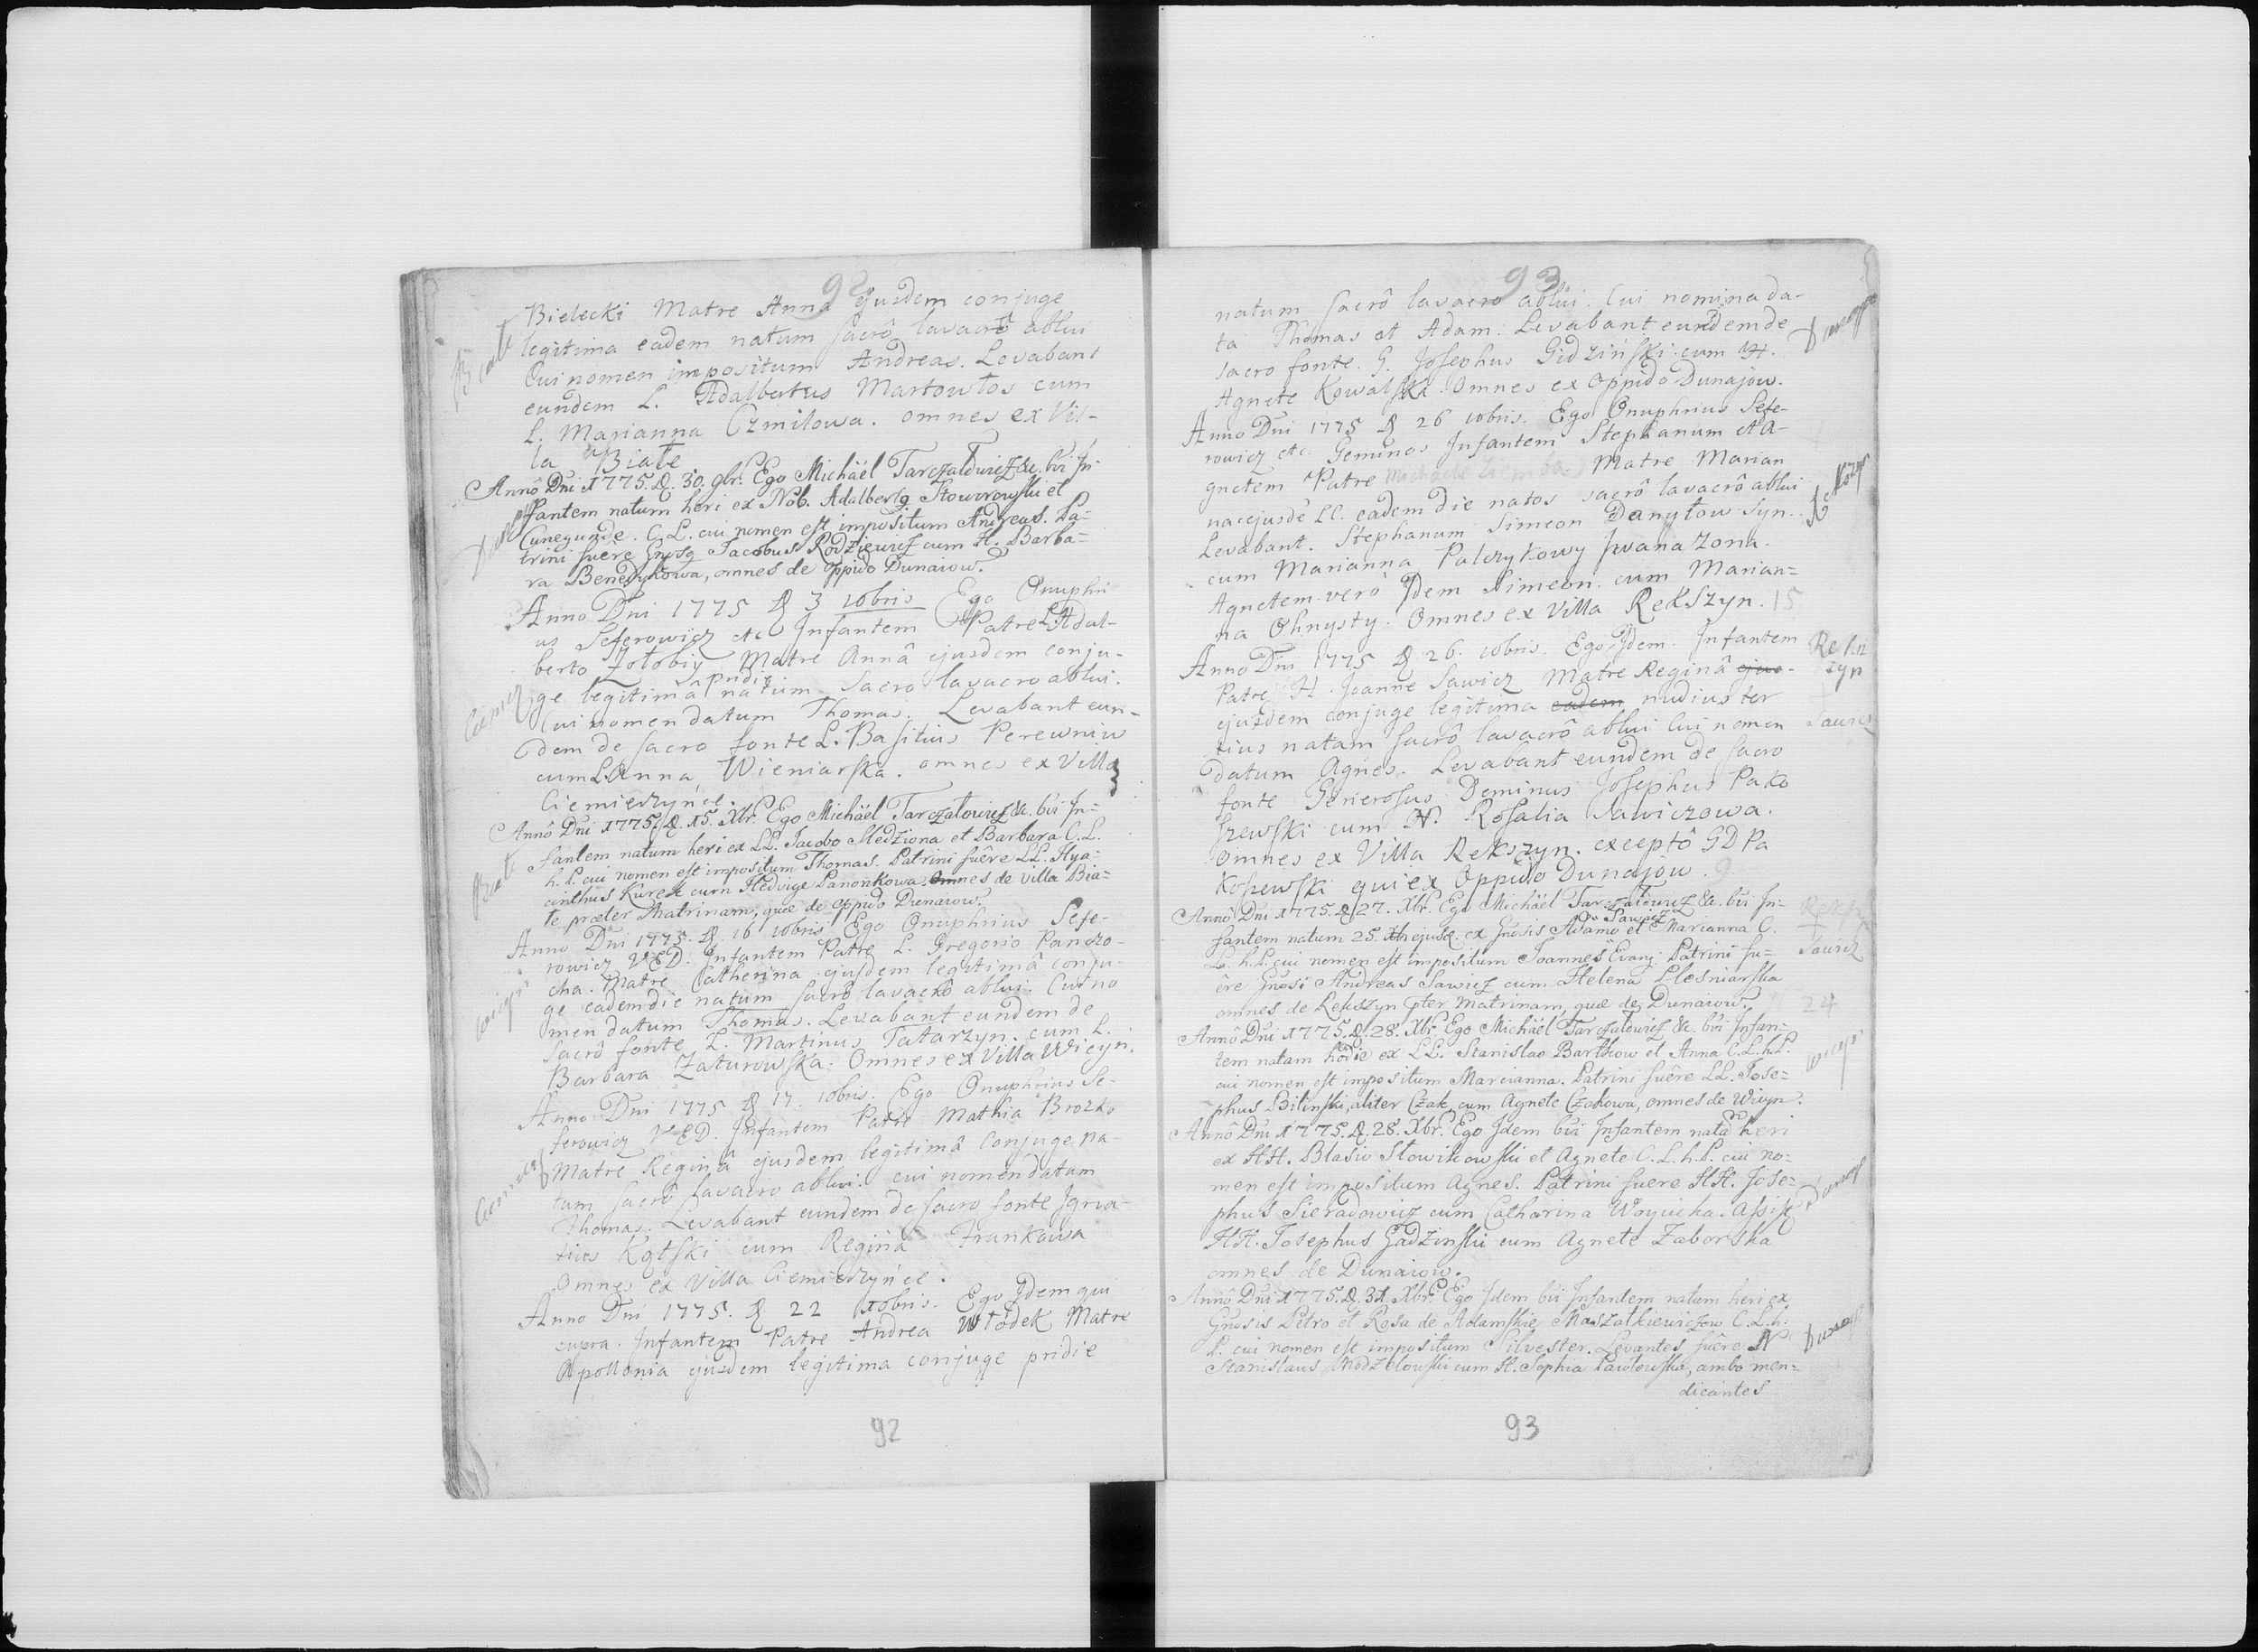 92
Bielecki Matre Anna ejusdem conjuge
legitima eadem natum sacrô lavacrô ablui
Cui nomen impositum Andreas. Levabant
eundem L. Adalbertus Martowłos cum
L. Marianna Czmilowa. omnes ex Vil-
la Białe
Białe
Annô Dni 1775. D. 30. 9br. Ego Michäel Tarczałowicz &c. bvi In-
fantem natum heri ex Nob. Adalberto Stowrowski et
Cunegunde. C. L. cui nomen est impositum Andreas. Pa-
trini fuêre Gnosq Jacobus Rodziewicz cum H. Barba-
ra Benedykowa, omnes de Oppido Dunaiow.
Anno Dni 1775 D 3 10bris Ego Onuphri
us Seferowicz etc Infantem Patre L Adal-
berto Zołobiy Matre Annâ ejusdem conju-
ge legitimâ pridie natum sacro lavacro ablui.
Cui nomen datum Thomas. Levabant eun-
dem de sacro fonte L. Basilius Perewniw
cum L Anna Wieniarska. omnes ex Villa
Ciemierzyńce.
Annô Dni 1775. D. 15. Xbr. Ego Michäel Tarczałowicz &c. bvi In-
fantem natum heri ex LL. Jacobo Sledziona et Barbara C. L.
h. P. cui nomen est impositum Thomas. Patrini fuêre LL. Hya-
cinthus Kurek cum Hedvige Panonkowa. Omnes de villa Bia-
łe præter Matrinam, quæ de oppido Dunaiow.
Białe
Anno Dni 1775. D 16 10bris Ego Onuphrius Sefe-
rowicz VED. Infantem Patre L. Gregorio Panczo-
cha. Matre Catherina ejusdem legitimâ conju-
ge eadem die natum sacrô lavacrô ablui. Cui no
men datum Thomas. Levabant eundem de
sacrô fonte L. Martinus Tatarzyn. cum L.
Barbara Zaturowska. Omnes ex Villa Wicyn.
Anno Dni 1775 D 17. 10bris. Ego Onuphrius Se-
ferowicz VED. Infantem Patre Mathia Brozk
Matre Reginâ ejusdem legitimâ Conjuge na-
tum sacro lavacro ablui. cui nomen datum
Thomas. Levabant eundem de sacro fonte Igna-
tius Kotski cum Reginâ Frankowa
Omnes ex Villa Ciemierzyńce.
Anno Dni 1775. D. 22 10bris. Ego Idem qui
supra. Infantem Patre Andrea Włodek Matre
Apollonia ejusdem legitima conjuge pridie
92
93
natum sacrô lavacro ablui. Cui nomina da-
ta Thomas et Adam. Levabant eundem de
sacro fonte. G. Josephus Gidziński cum H.
Agnete Kowalska. Omnes ex Oppido Dunajow.
Anno Dni 1775 D 26 10bris. Ego Onuphrius Sefe-
rowicz etc. Geminos Infantem Stephanum et A-
gnetem Patre Michaele Matre Marian
na ejusdē LC. eadem die natos sacrô lavacrô ablui
Levabant. Stephanum Simeon Danyłow Syn.
cum Marianna Palczykowy Iwana zona.
Agnetem verò Idem Simeon cum Marian-
na Ohnysty. Omnes ex Villa Rekszyn. 15
Anno Dni 1775 D 26. 10bris. Ego Idem. Infantem
Patre H. Joanne Sawicz Matre Reginâ ejus-
ejusdem conjuge legitima eadem nudius ter
tius natam sacrô lavacrô ablui Cui nomen
datum Agnes. Levabant eundem de sacro
fonte Generosus Dominus Josephus Pako
szewski cum H. Rosalia Sawiczowa.
Omnes ex Villa Rekszyn. exceptô GD Pa
koszewski qui ex Oppido Dunajow. 9
Rekszyn
Sawicz
Annô Dni 1775. D. 27. Xbr. Ego Michäel Tarczałowicz &c. bvi In-
fantem natum 25. Xbr ejusd. ex Gnosis Adamo Sawicz et Marianna C.
L. h. P. cui nomen est impositum Joannes Evang. Patrini fu-
êre Gnosi Andreas Sawicz cum Helena Plesniarska
omnes de Rekszyn pter Matrinam, quæ de Dunaiow.
Sawicz
24
Annô Dni 1775. D. 28. Xbr. Ego Michäel Tarczałowicz &c. bvi Infan-
tem natam hodie ex LL. Stanislao Bartkow et Anna C. L. h. P.
cui nomen est impositum Marcianna. Patrini fuêre LL. Jose-
phus Bilinski, aliter Czak, cum Agnete Czakowa, omnes de Wicyn.
Annô Dni 1775. D. 28. Xbr. Ego Idem bvi Infantem natā heri
ex HH. Blasio Słowikowski et Agnete C. L. h. P. cui no-
men est impositum Agnes. Patrini fuere HH. Jose-
phus Sieradowicz cum Catharina Woycicha. Assist
HH. Josephus Gadzinski cum Agnete Zaborska
omnes de Dunaiow.
Annô Dni 1775. D. 31. Xbr. Ego Idem bvi Infantem natum heri ex
Gnosis Petro et Rosa de Adamskie Maszałkiewiczow C. L. h.
P. cui nomen est impositum Silvester. Levantes fuêre H
Stanislaus Modzelowski cum H. Sophia Pawłowska, ambo men-
dicantes
93